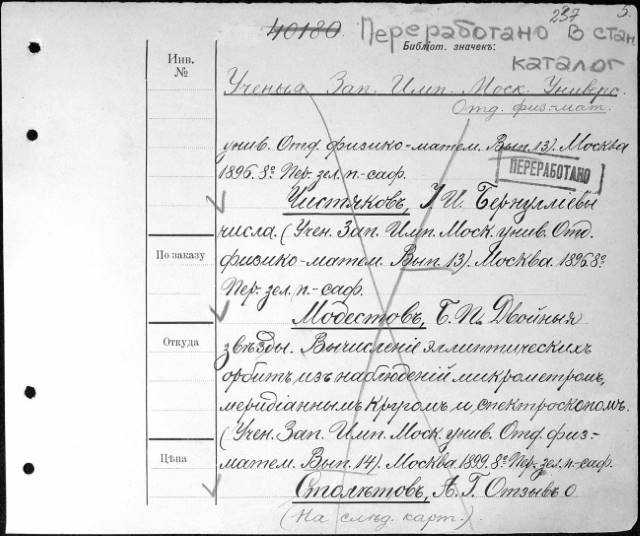 40180. Переработано в стан
237 5.
Библіот. значекъ:
каталог
Инв.
№
Ученыя Зап. Имп. Моск. Универс.
Отд. физ-мат.
унив. Отд. физико-матем. Вып. 13). Москва
1896. 8º Пер. зел. п.-саф.
ПЕРЕРАБОТАНО
Чистяковъ, І. И. Бернулліевы
числа. (Учен. Зап. Имп. Моск. унив. Отд.
По заказу
физико-матем. Вып. 13). Москва. 1896. 8º
Пер. зел. п.-саф.
Модестовъ, Б. П. Двойныя
Откуда
звѣзды. Вычисленіе эллиптическихъ
орбитъ изъ наблюденій микрометромъ,
меридіаннымъ кругомъ и спектроскопомъ.
(Учен. Зап. Имп. Моск. унив. Отд. физ-
Цѣна
матем. Вып. 14). Москва. 1899. 8º Пер. зел. п.-саф.
Столѣтовъ, А. Г. Отзывъ о
(На слѣд. карт.)